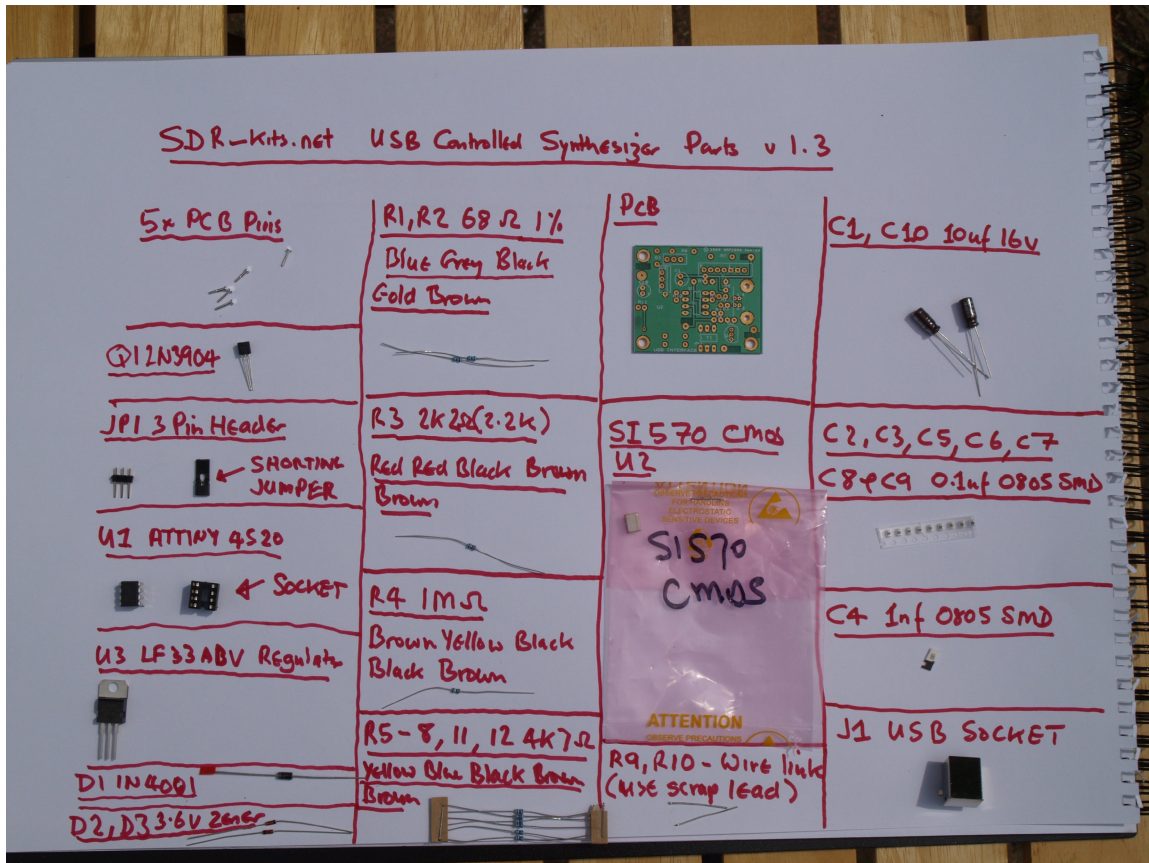 SDR-Kits.net USB Controlled Synthesizer Parts v 1.3
5x PCB Pins
Q1 2N3904
JP1 3 Pin Header
SHORTING
JUMPER
U1 ATTINY 4520
SOCKET
U3 LF33ABV Regulator
D1 1N4001
D2, D3 3.6V Zener
R1, R2 68 Ω 1%
Blue Grey Black
Gold Brown
R3 2K2Ω (2.2K)
Red Red Black Brown
Brown
R4 1MΩ
Brown Yellow Black
Black Brown
R5-8, 11, 12 4K7Ω
Yellow Blue Black Brown
Brown
PCB
USB INTERFACE
SI570 CMOS
U2
OBSERVE PRECAUTIONS
FOR HANDLING
ELECTROSTATIC
SENSITIVE DEVICES
SI570
CMOS
ATTENTION
OBSERVE PRECAUTIONS
R9, R10 - Wire link
(USE scrap lead)
C1, C10 10uf 16v
C2, C3, C5, C6, C7
C8 & C9 0.1uf 0805 SMD
C4 1nf 0805 SMD
J1 USB SOCKET